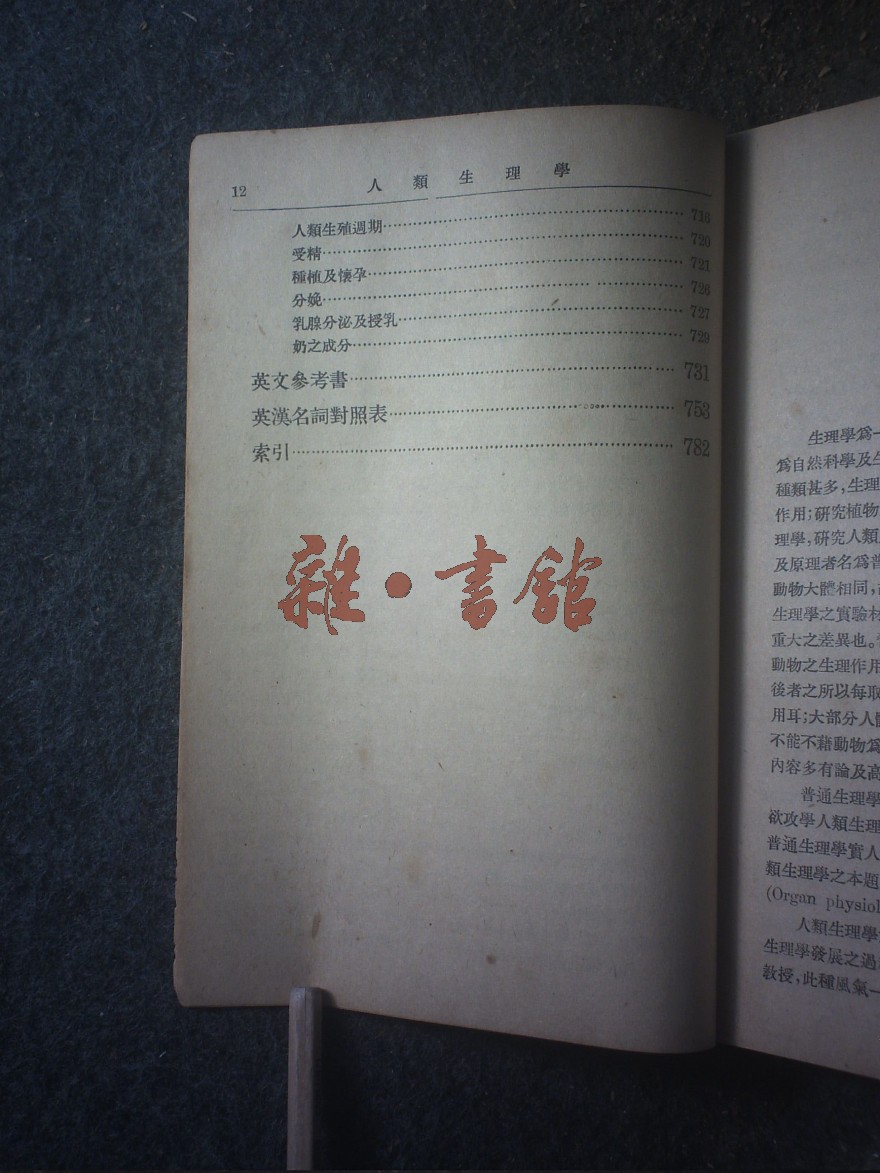 12 人類生理學
人類生殖週期 718
受精 720
種植及懷孕 721
分娩 726
乳腺分泌及授乳 727
奶之成分 729
英文參考書 731
英漢名詞對照表 753
索引 782
雜·書館
生理學爲一
爲自然科學及生
種類甚多,生理
作用;研究植物
理學,研究人類
及原理者名爲普
動物大體相同,
生理學之實驗材
重大之差異也。
動物之生理作用
後者之所以每取
用耳;大部分人
不能不藉動物爲
內容多有論及高
普通生理學
欲攻學人類生理
普通生理學實人
類生理學之本題
(Organ physiol
人類生理學
生理學發展之過
教授,此種風氣一